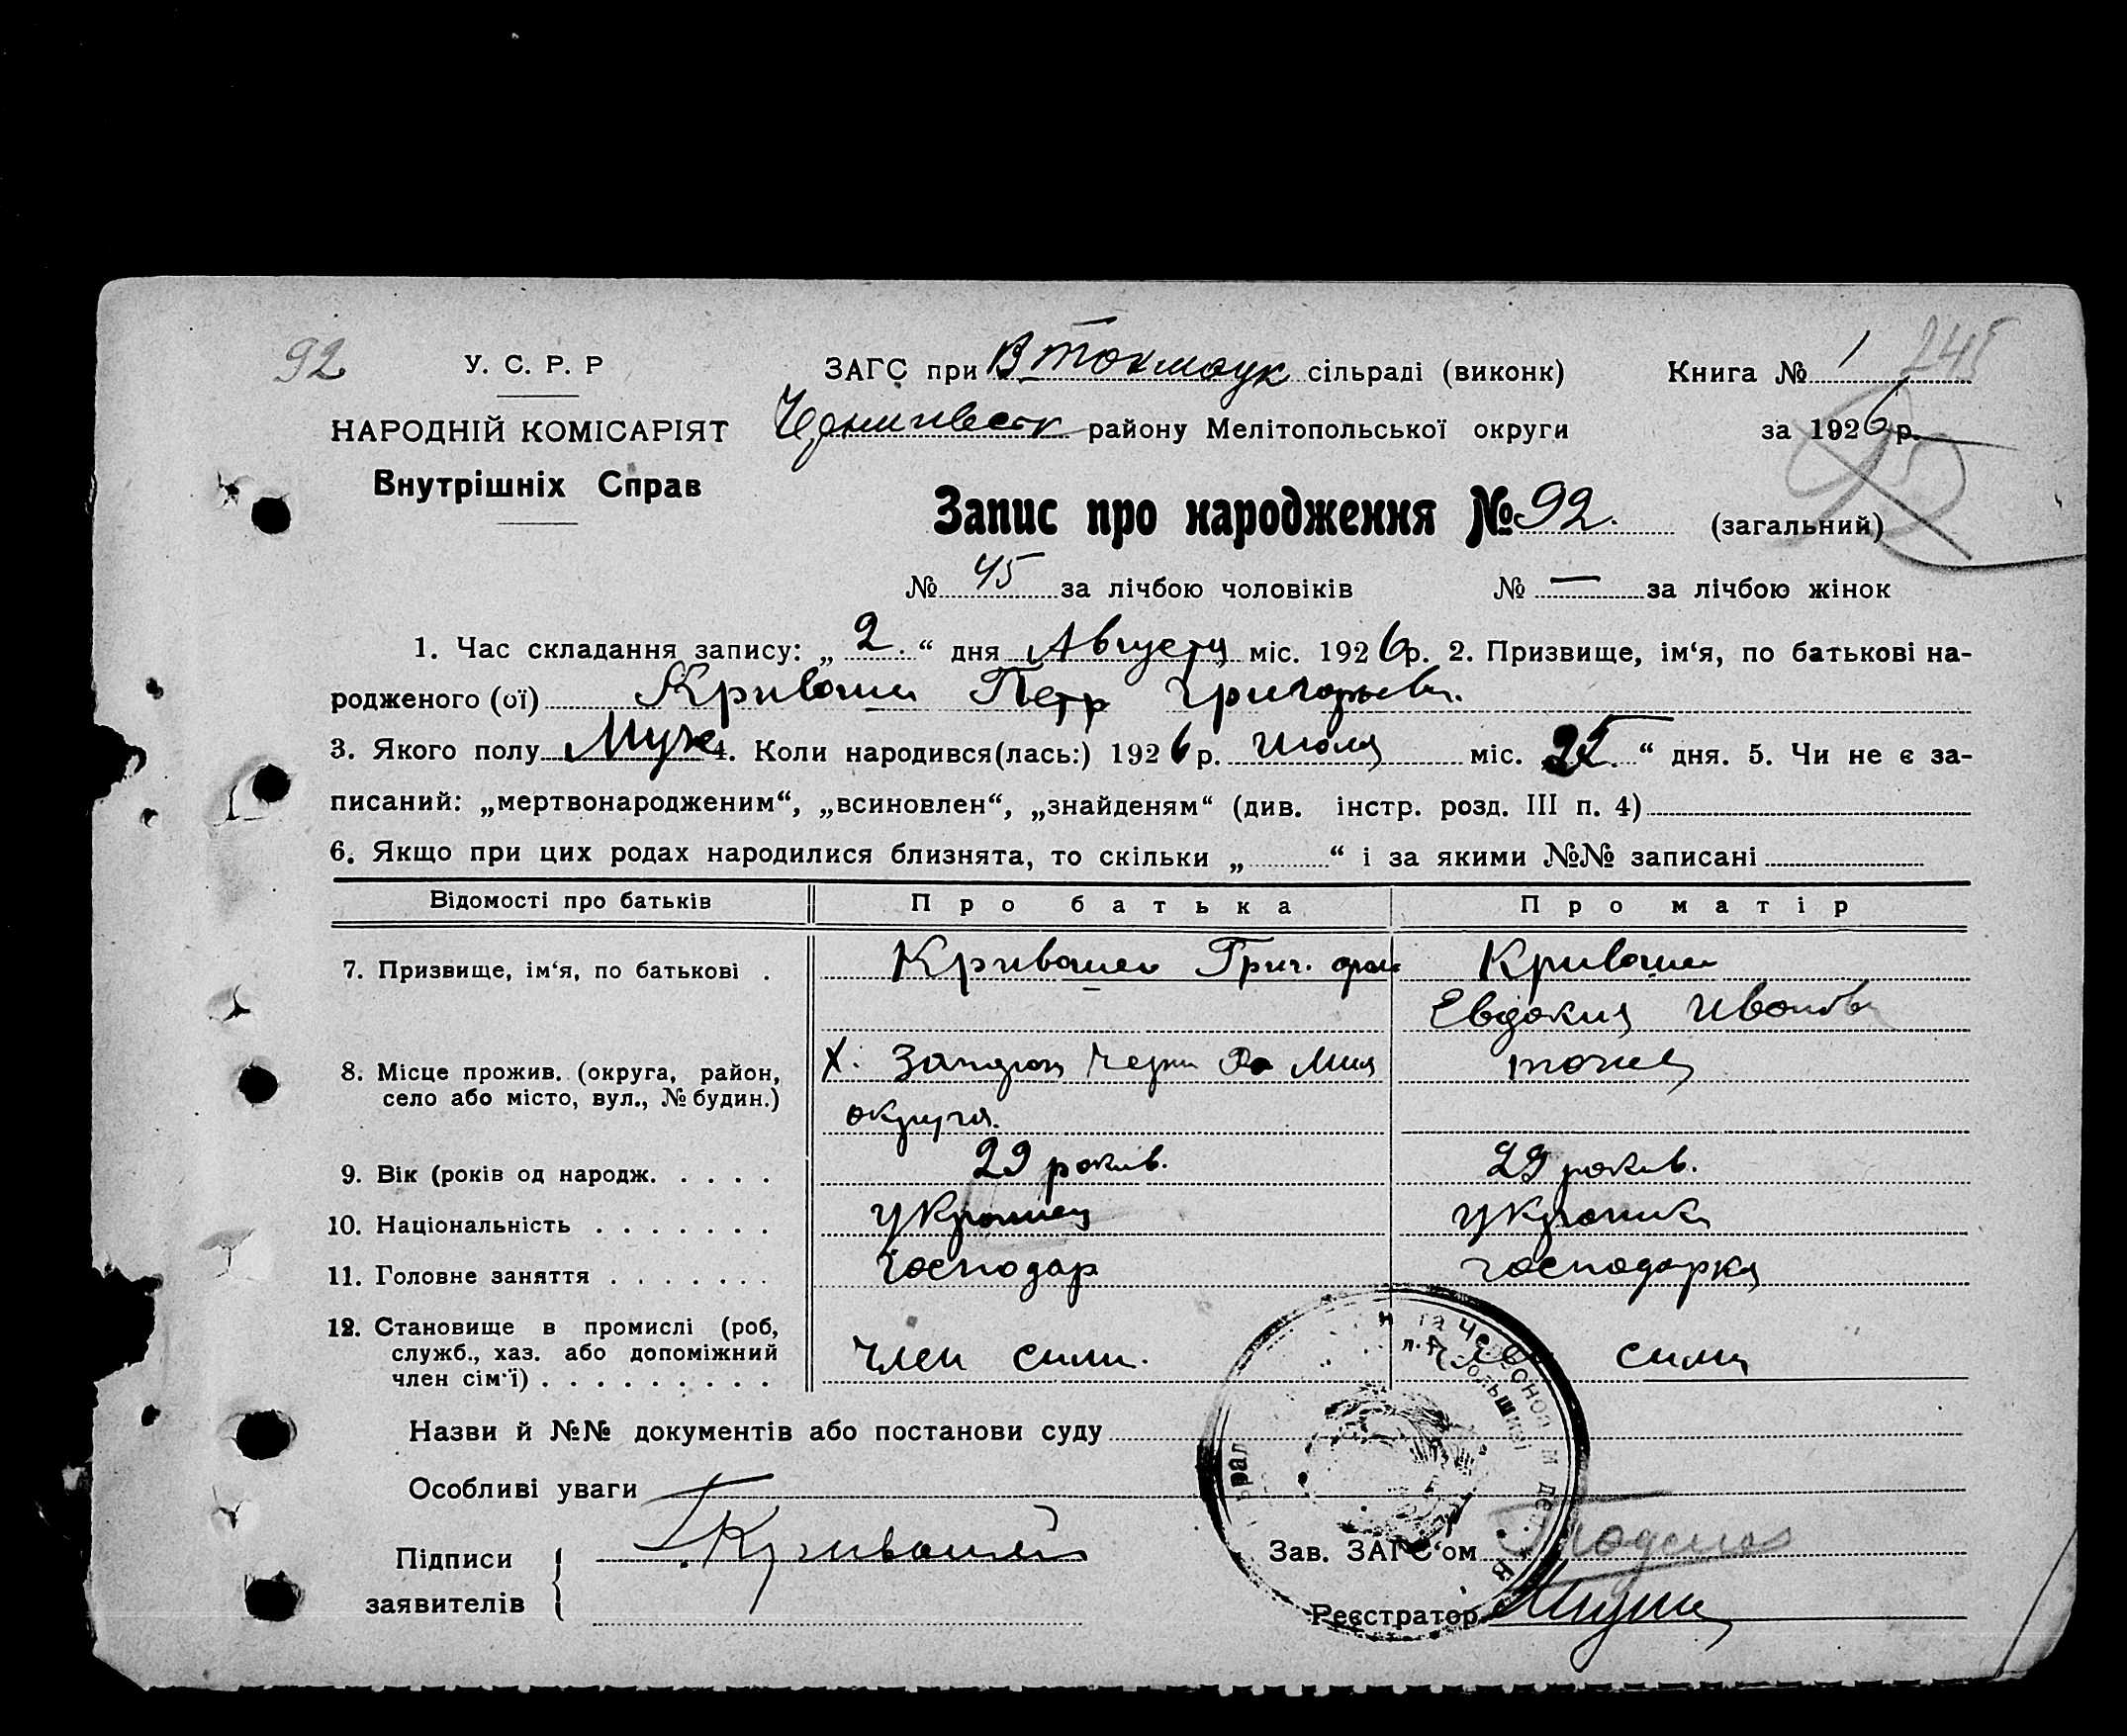 92
У. С. Р. Р
ЗАГС при В Токмаук сільраді (виконк)
Книга № 1 245
НАРОДНІЙ КОМІСАРІЯТ
Чернигвеск району Мелітопольської округи
за 1926 р.
Внутрішніх Справ
Запис про народження № 92. (загальний)
№ 45 за лічбою чоловіків № — за лічбою жінок
1. Час складання запису: „ 2. “ дня Августа міс. 1926 р. 2. Призвище, ім‘я, по батькові на-
родженого (ої) Кривоши Петр Григорьев.
3. Якого полу Муж 4. Коли народився(лась:) 1926 р. Июля міс. “ дня. 5. Чи не є за-
писаний: „мертвонародженим“, „всиновлен“, „знайденям“ (див. інстр. розд. III п. 4)
6. Якщо при цих родах народилися близнята, то скільки „ “ і за якими №№ записані
Відомості про батьків Про батька Про матір
7. Призвище, ім‘я, по батькові . Кривошеи Григ. Кривоше
Евдокия Иванов
8. Місце прожив. (округа, район, Х. Черн тоже
село або місто, вул., № будин.) округа.
9. Вік (років од народж. . . . . 29 роков. 29 роков.
10. Національність . . . . . . . Украинец Украинка
11. Головне заняття . . . . . . . Господар господарка
12. Становище в промислі (роб,
служб., хаз. або допоміжний член сими. член сими
член сім‘ї) . . . . . . . . .
Назви й №№ документів або постанови суду
Особливі уваги
Підписи
заявителів
Г. Кривошей
Зав. ЗАГС‘ом
Реєстратор